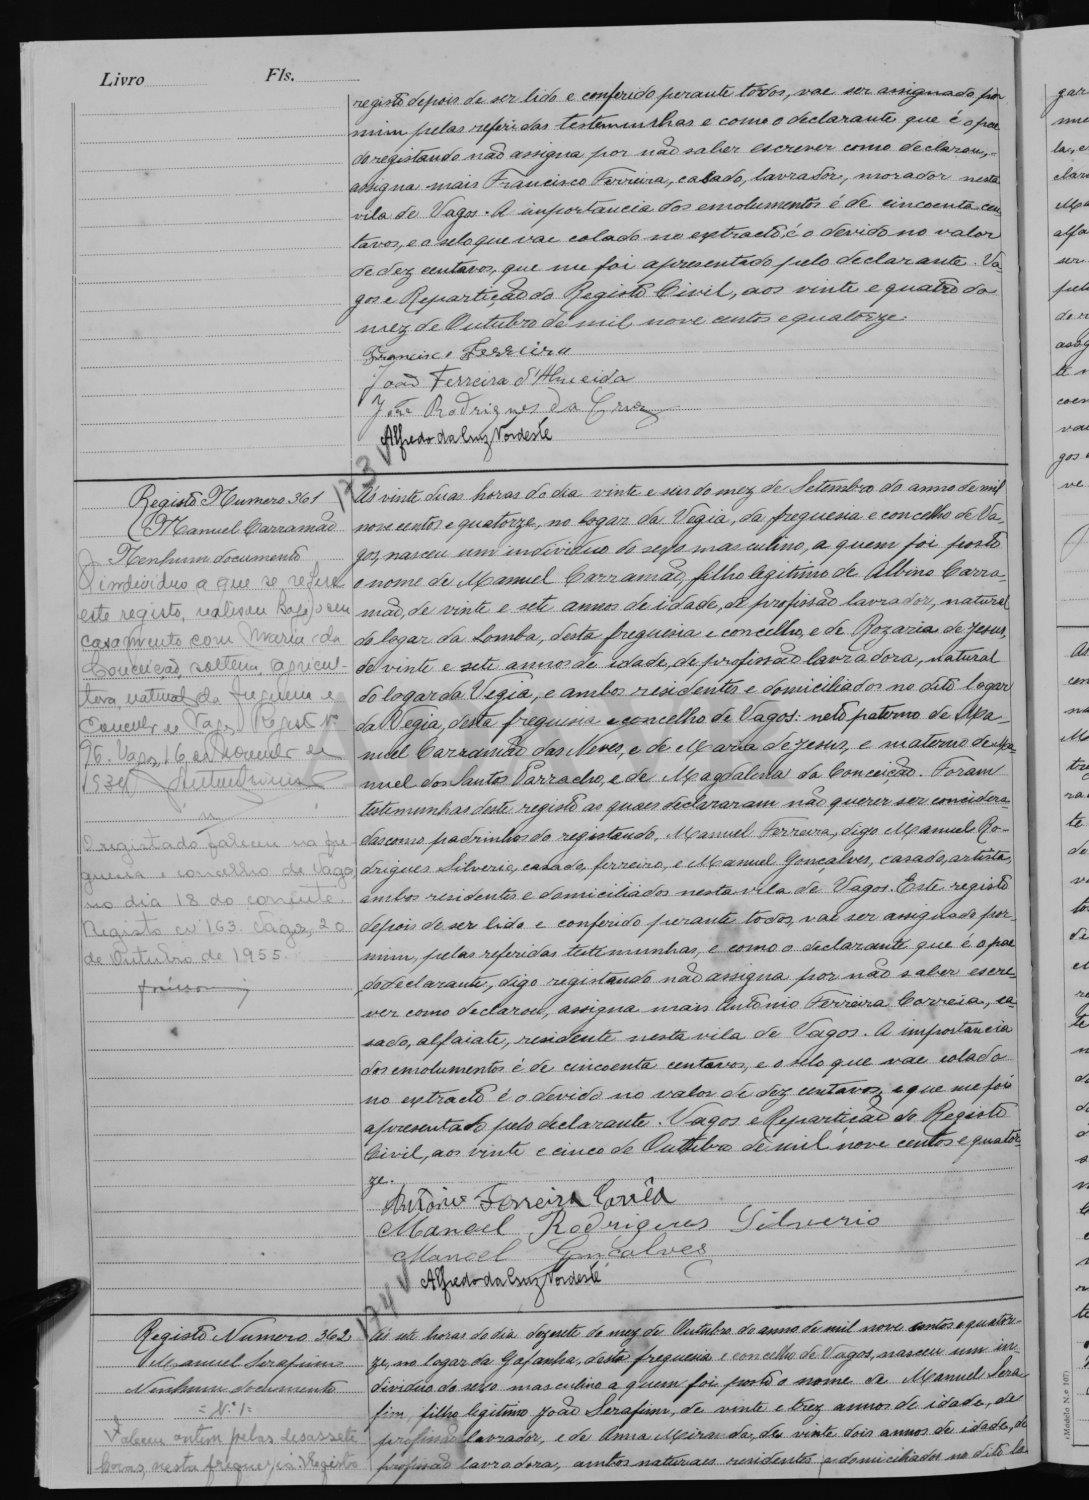 Livro Fls.
registo depois de ser lido e conferido perante todos, vae ser assignado por
mim pelas referidas testemunhas e como o declarante que é o pae
do registando não assigna por não saber escrever como declarou,
assigna mais Francisco Ferreira, casado, lavrador, morador nesta
vila de Vagos. A importancia dos emolumentos é de cincoenta cen
tavos, e o selo que vae colado no extracto, é o devido no valor
de dez centavos, que me foi apresentado pelo declarante. Va-
gos e Repartição do Registo Civil, aos vinte e quatro do
mez de Outubro de mil nove centos e quatorze.
Francisco Ferreira
João Ferreira d'Almeida
José Rodrigues da Cruz
Alfredo da Cruz Nordeste
173
Registo Numero 361
Manuel Carramão
Nenhum documento
O individuo a que se refere
este registo, realisou hoje o seu
casamento com Maria da
Conceição, solteira, agricul-
tora, natural da freguesia e
Concelho de Vagos. Registo Nº
96. Vagos, 16 de Novembro de
1934
O registado faleceu na fre
guesia e concelho de Vagos
no dia 18 do corrente.
Registo nº 163. Vagos, 20
de Outubro de 1955.
Ás vinte duas horas do dia vinte e seis do mez de Setembro do anno de mil
nove centos e quatorze, no logar da Vegia, da freguesia e concelho de Va-
gos, nasceu um individuo do sexo masculino, a quem foi posto
o nome de Manuel Carramão, filho legitimo de Albino Carra-
mão, de vinte e sete annos de idade, de profissão lavrador, natural
do logar da Lomba, desta freguesia e concelho, e de Rozaria de Jesus,
de vinte e sete annos de idade, de profissão lavradora, natural
do logar da Vegia, e ambos residentes e domiciliados no dito logar
da Vegia, desta freguesia e concelho de Vagos: neto paterno de Ma-
nuel Carramão das Neves, e de Maria de Jesus, e materno de Ma-
nuel dos Santos Parracho, e de Magdalena da Conceição. Foram
testimunhas deste registo as quaes declararam não querer ser concidera-
das como padrinhos do registando, Manuel Ferreira, digo Manuel Ro-
drigues Silverio, casado, ferreiro, e Manuel Gonçalves, casado, artista,
ambos residentes e domiciliados nesta vila de Vagos. Este registo
depois de ser lido e conferido perante todos, vae ser assignado por
mim, pelas referidas testimunhas, e como o declarante que é o pae
do declarante, digo registando não assigna por não saber escre-
ver como declarou, assigna mais Antonio Ferreira Correia, ca-
sado, alfaiate, residente nesta vila de Vagos. A importancia
dos emolumentos é de cincoenta centavos, e o selo que vae colado
no extracto é o devido no valor de dez centavos, e que me foi
apresentado pelo declarante. Vagos e Repartição do Registo
Civil, aos vinte e cinco de Outubro de mil nove centos e quator-
ze.
Antonio Ferreira Corrêa
Manoel Rodrigues Silverio
Manoel Gonçalves
Alfredo da Cruz Nordeste
174
Registo Numero 362
Manuel Serafim
Nenhum documento
= N.º 1 =
Faleceu ontem pelas desassete
horas, nesta freguesia. Registo
Ás sete horas do dia dezesete do mez de Outubro do anno de mil nove centos e quator-
ze, no logar da Gafanha, desta freguesia e concelho de Vagos, nasceu um in-
dividuo do sexo masculino a quem foi posto o nome de Manuel Sera
fim, filho legitimo João Serafim, de vinte e trez annos de idade, de
profissão lavrador, e de Anna Miranda, de vinte dois annos de idade, de
profissão lavradora, ambos naturaes residentes e domiciliados no dito lo
(Modelo N.º 107)